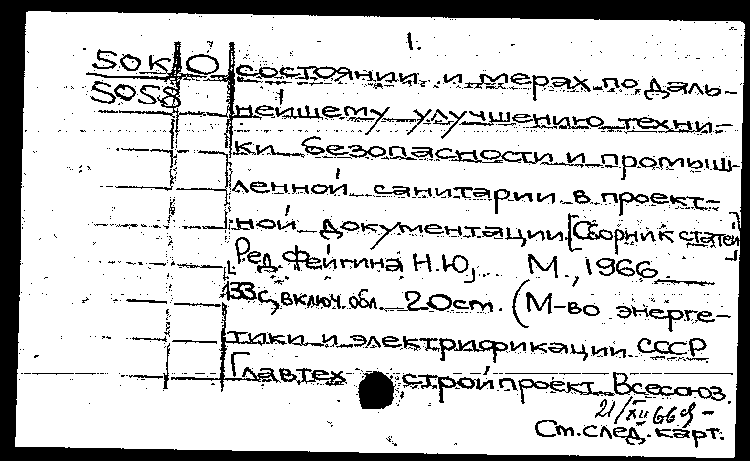 1.
50к О состоянии и мерах по даль-
5058 нейшему улучшению техни-
ки безопасности и промыш-
ленной санитарии в проект-
ной документации. [Сборник статей]
Ред. Фейгина Н.Ю. М., 1966.
33 с, включ. обл. 20 см. (М-во энерге-
тики и электрификации СССР
Главтех стройпроект. Всесоюз.
21/XII 66 г -
См. след. карт.